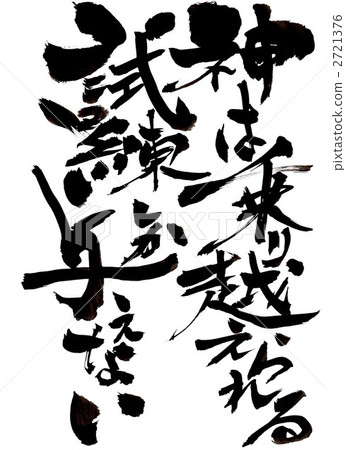 神は乗り越えられる
試練しか与えない
PIXTA
2721376